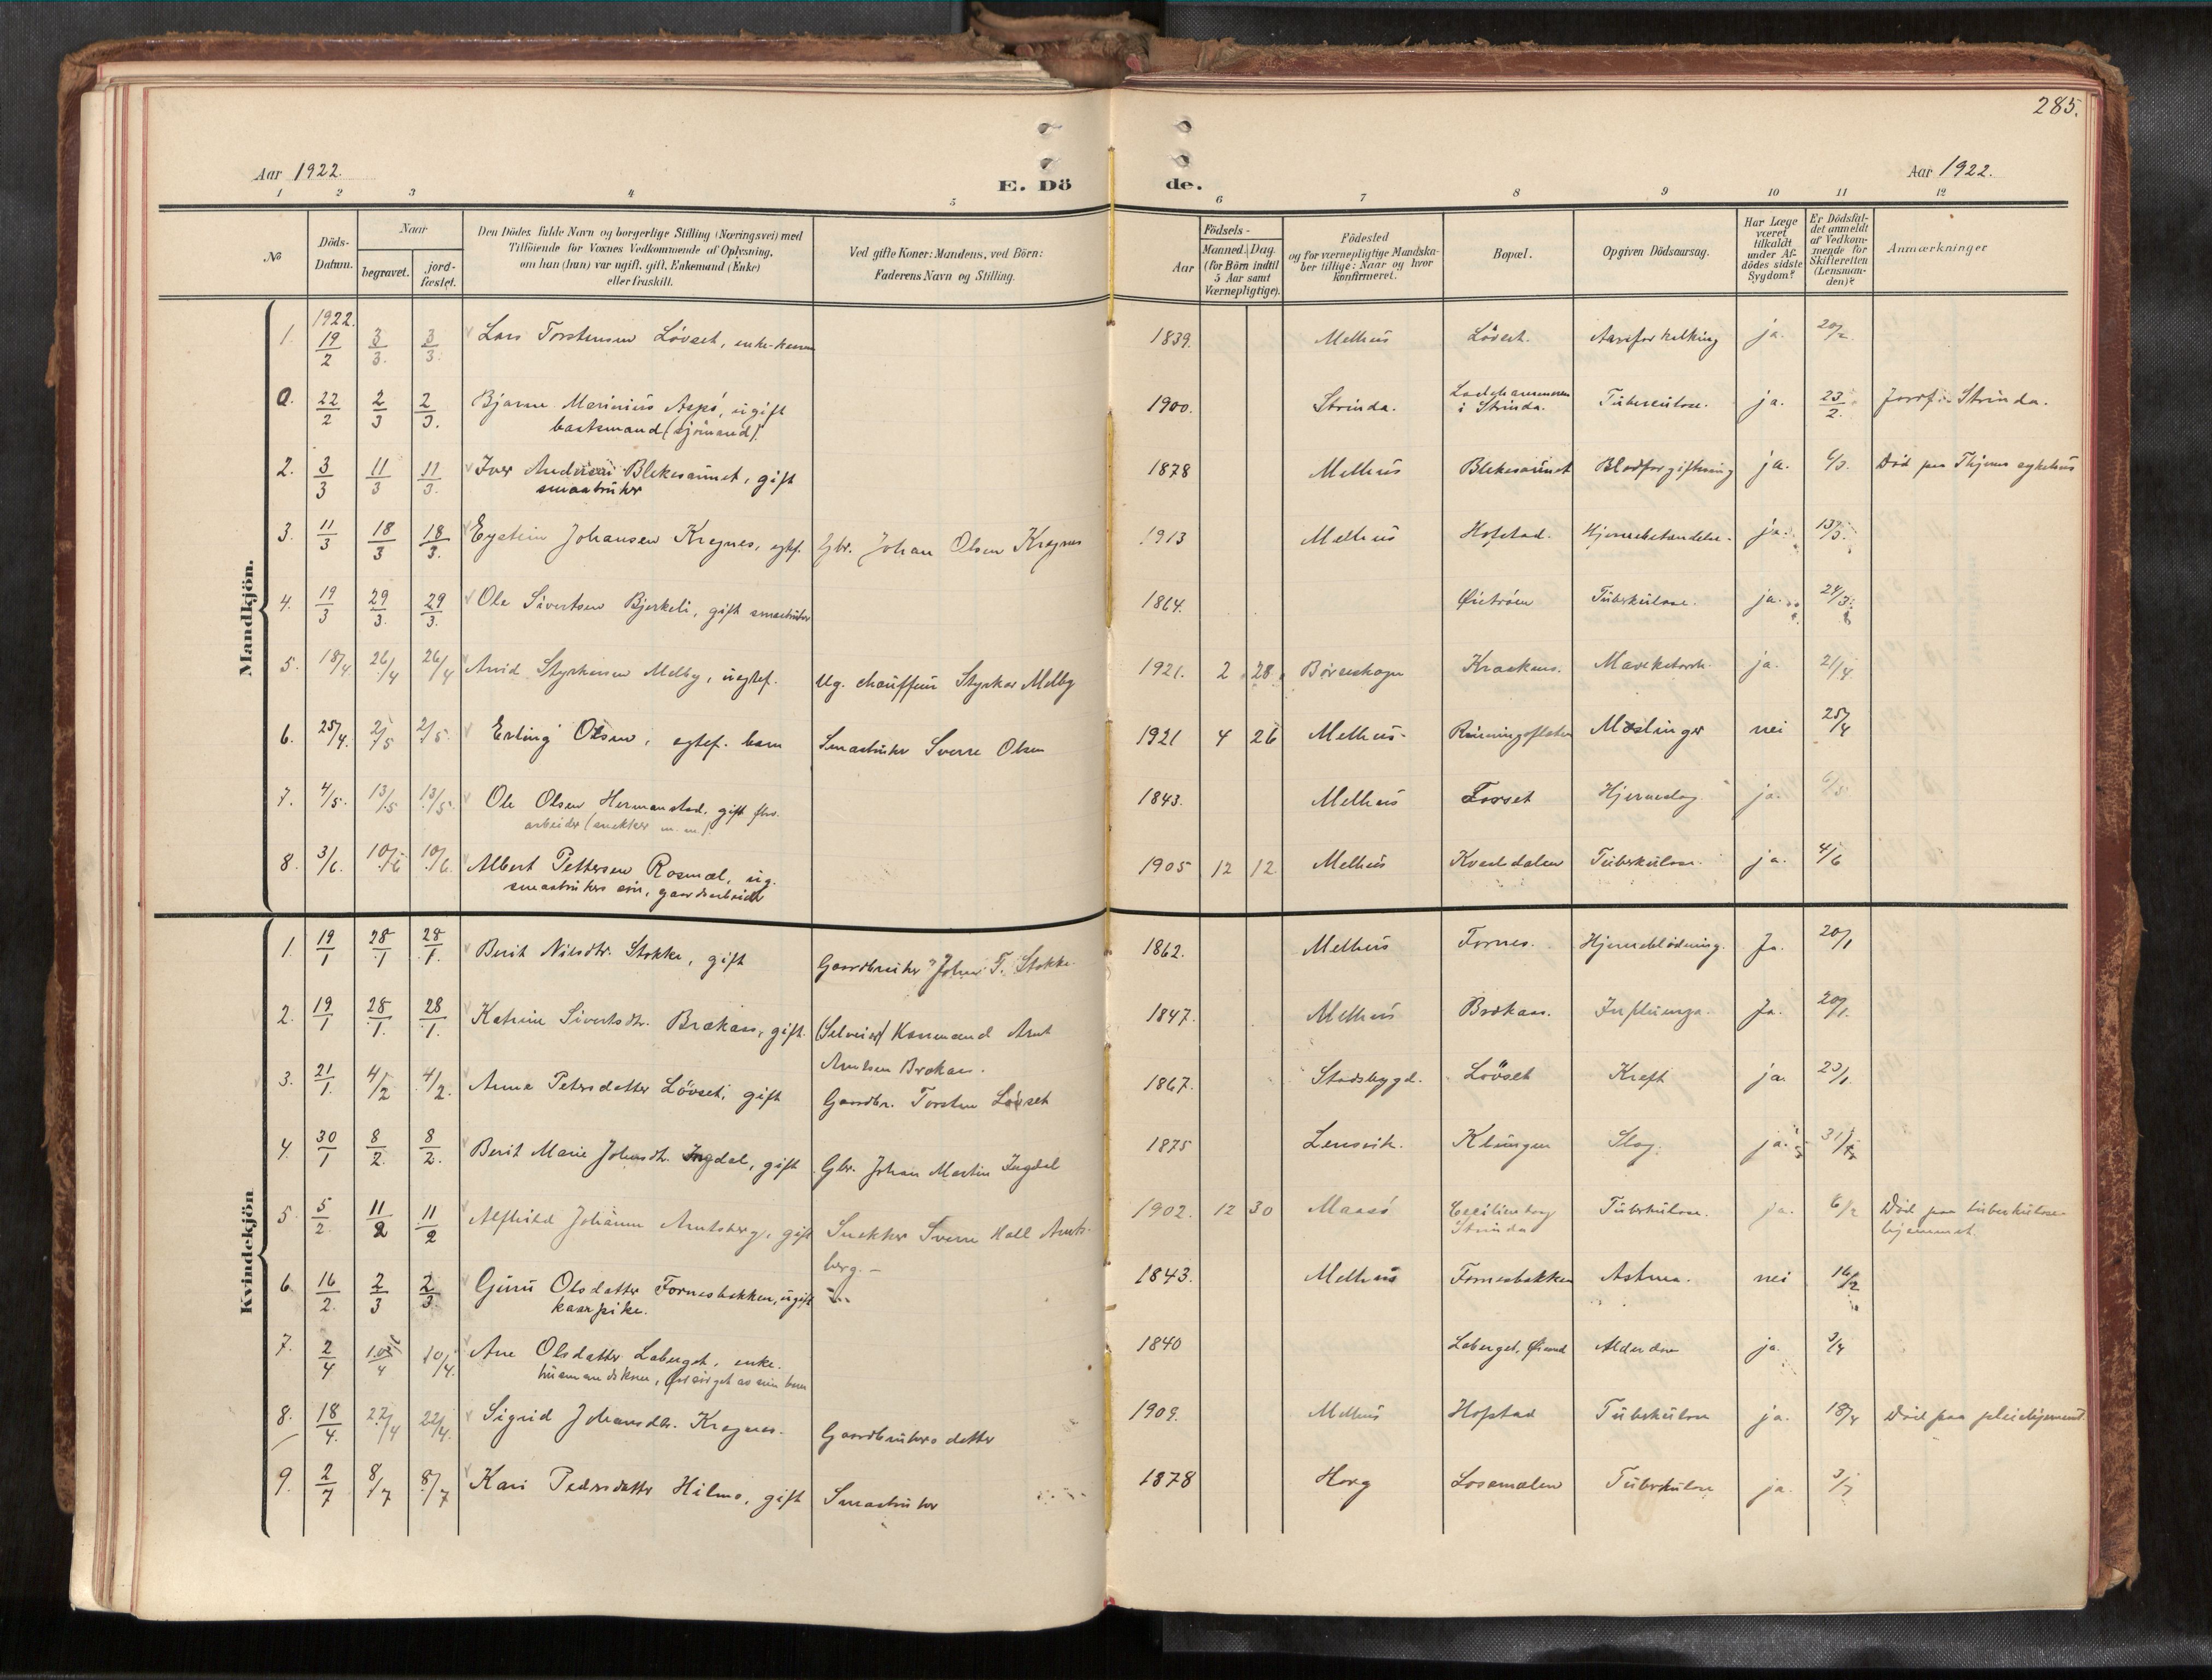 285.
Aar 1922.
E. Dö
de.
Aar 1922.
1 2 3 4 5 6 7 8 9 10 11 12
No
Döds-
Datum.
Naar
begravet.
jord-
fæstet.
Den Dödes fulde Navn og borgerlige Stilling (Næringsvei) med
Tilföiende for Voxnes Vedkommende af Oplysning,
om han (hun) var ugift, gift, Enkemand (Enke)
eller fraskilt.
Ved gifte Koner: Mandens, ved Börn:
Faderens Navn og Stilling.
Födsels-
Aar
Maaned. Dag.
(for Börn indtil
5 Aar samt
Værnepligtige).
Födested
og for værnepligtige Mandska-
ber tillige: Naar og hvor
konfirmeret.
Bopæl.
Opgiven Dödsaarsag.
Har Læge
været
tilkaldt
under Af-
dödes sidste
Sygdom?
Er Dödsfal-
det anmeldt
af Vedkom-
mende for
Skifteretten
(Lensman-
den)?
Anmærkninger
Mandkjön.
1922.
1. 19/2 3/3 3/3 Lars Torstensen Løvset, enkemann 1839. Melhus Løvset. Aareforkalkning ja. 20/2
0. 22/2 2/3 2/3. Bjarne Marinius Aspö, ugift 1900. Strinda. Ladehammeren Tuberculose. ja. 23/2. Jordf. i Strinda.
baatsmand (sjömand). i Strinda.
2. 3/3 11/3 11/3. Iver Andersen Blekesaunet, gift 1878 Melhus Blekesaunet Blodforgiftning ja. 6/3. Död paa sykehus
smaabruker
3. 11/3 18/3 18/3. Eystein Johansen Kregnes, egtef. Gbr. Johan Olsen Kregnes 1913 Melhus Hofstad. Hjernebetændelse. ja. 13/3.
4. 19/3 29/3. 29/3. Ole Sivertsen Bjerkeli, gift smaabruker 1864. Øietrøen Tuberkulose. ja. 24/3.
5. 18/4 26/4 26/4 Arvid Styrkersen Melby, uegtef. Ug. chauffeur Styrker Melby 1921. 2 28. Børseskogn Kraakens. ja. 21/4.
6. 25/4. 2/5 2/5. Erling Olsen, egtef. barn Smaabruker Sverre Olsen 1921 4 26 Melhus Mæslinger nei 25/4
7. 4/5. 13/5 13/5. Ole Olsen Hermanstad, gift fhv. 1843. Melhus Forset Hjerneslag. ja. 6/5.
arbeider (snekker m.m.).
8. 3/6. 10/6 10/6. Albert Pettersen Rosmæl, ug. 1905 12 12. Melhus Kvaaldalen Tuberkulose. ja. 4/6
smaabrukers søn, gaardsarbeider
Kvindekjön
1. 19/1 28/1 28/1. Berit Nilsdtr. Stokke, gift Gaardbruker Johan T. Stokke. 1862. Melhus Fornes. Hjerneblödning. Ja. 20/1
2. 19/1 28/1. 28/1. Katrine Sivertsdtr. Brækaas, gift. (Selveier) Kaarmand Arnt 1847. Melhus Brækaas. Influenza. Ja. 20/1.
Arntsen Brækaas.
3. 21/1. 4/2 4/2. Anna Petersdatter Lövset, gift Gaardbr. Torsten Løvset 1867. Stadsbygd. Lövset Kreft ja. 23/1.
4. 30/1 8/2. 8/2. Berit Marie Johnsdtr. Ingdal, gift Gbr. Johan Martin Ingdal 1875 Lensvik. Klungen Slag. ja. 31/1
5. 5/2. 11/2 11/2 Alfhild Johanne Arntsberg, gift Snekker Sverre Hall Arnts- 1902. 12 30 Maasö Cecilienborg Tuberkulose. ja. 6/2 Död paa tuberkulose-
berg. — Strinda hjemmet.
6 16/2. 2/3 2/3. Guru Olsdatter Fornesbakken, ugift 1843. Melhus Fornesbakken Astma. nei 16/2
kaarpike.
7. 2/4 10/4 10/4. Ane Olsdatter Laberget, enke. 1840 Laberget, Alderdom ja. 3/4
husmandskone, forsørget av sine barn
8. 18/4. 22/4 22/4. Sigrid Johansdtr. Kregnes. Gaardbrukers datter 1909. Melhus Hofstad Tuberkulose ja. 18/4 Död paa pleiehjemmet.
9. 2/7 8/7 8/7 Kari Pedersdatter Hilmo, gift Smaabruker 1878 Horg Losemælen Tuberkulose ja. 3/7